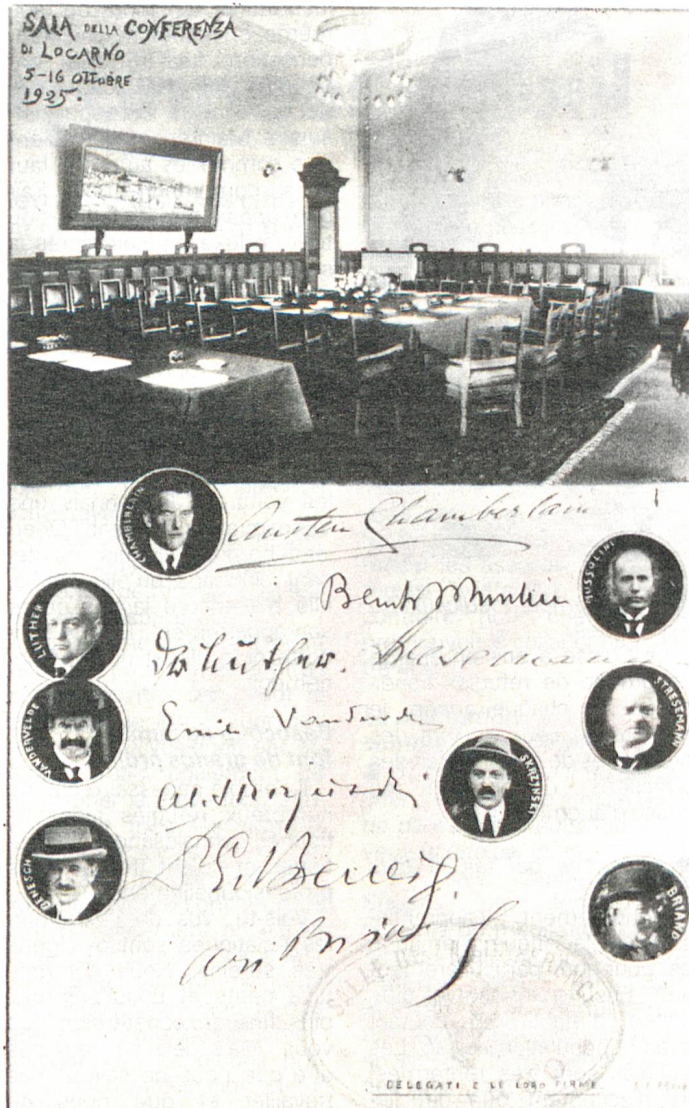 SALA DELLA CONFERENZA
DI LOCARNO
5-16 OTTOBRE
1925.
CHAMBERLAIN
Austen Chamberlain
MUSSOLINI
LUTHER
Dr Luther. Stresemann
STRESEMANN
VANDERVELDE
Emile Vandervelde
SKRZINSKI
Al. Skrzynski
BENESCH
Dr E. Beneš
BRIAND
Ari Briand
SALLE DE LA CONFERENCE
DELEGATI E LE LORO FIRME